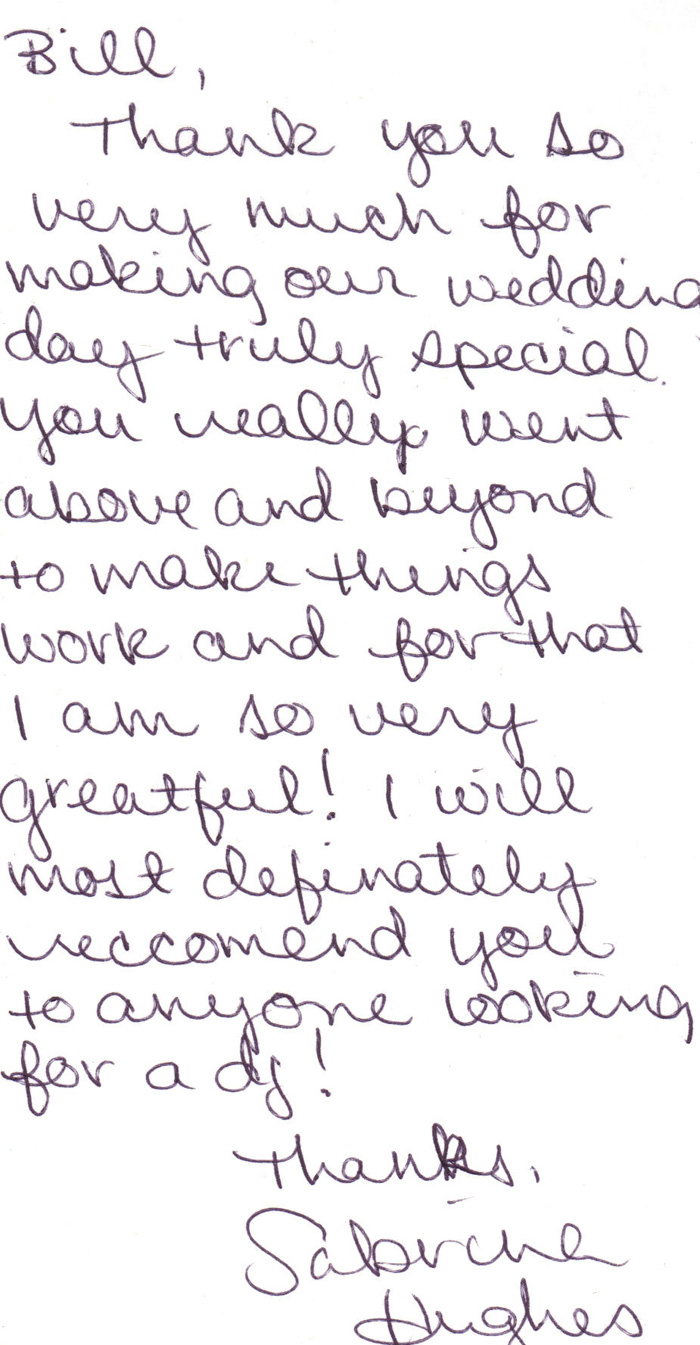 Bill,
Thank you so
very much for
making our wedding
day truly special.
You really went
above and beyond
to make things
work and for that
I am so very
greatful! I will
most definately
reccomend you
to anyone looking
for a dj!
Thanks,
Sabrina
Hughes